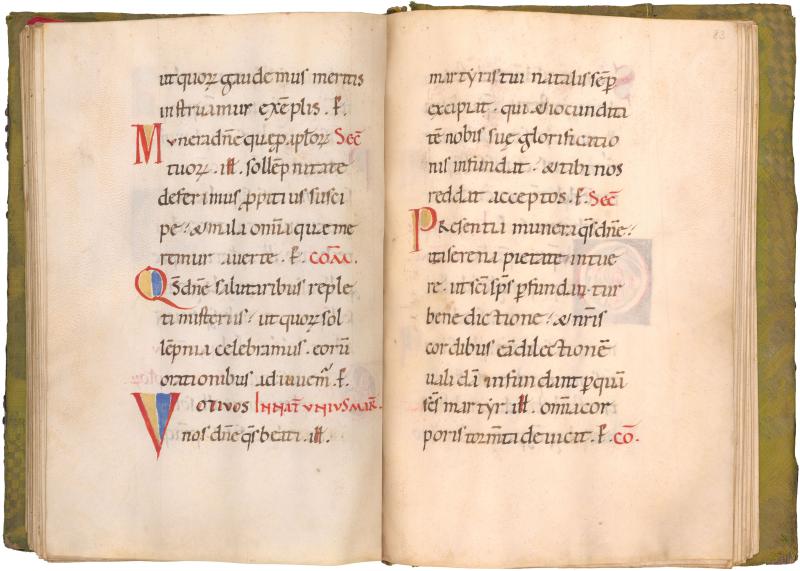 ut quoꝝ gaudemus meritis
instruamur exēplis . ꝑ.
Munera dn̄e que ꝓ apl̄oꝝ Sec̄
tuoꝝ . ill̄ . sollēpnitate
deferimus ꝓpitius susci
pe ⁊ & mala om̄a que me
remur auerte . ꝑ. COM̄.
Qs̄ dn̄e salutaribus reple
ti misteriis ⁊ ut quoꝝ sol
lēpnia celebramus . eorū
orationibus adiuuem̄ . ꝑ.
VOTIVOS IN NAT̄ UNIUS MAR̄.
nos dn̄e qs̄ beati . ill̄ .
83
martyris tui natalis sēꝑ
excipiat . qui & iocundita
tē nobis sue glorificatio
nis infundat . & tibi nos
reddat acceptos . ꝑ. Sec̄
Presentia munera qs̄ dn̄e ⁊
ita serena pietate intue
re . ut sc̄i sp̄s ꝑfundantur
benedictione ⁊ & nr̄is
cordibus eā dilectionē
ualidā infundant ꝑ quā
sc̄s martyr . ill̄ . om̄a cor
poris torm̄ta deuicit . ꝑ. CŌ.